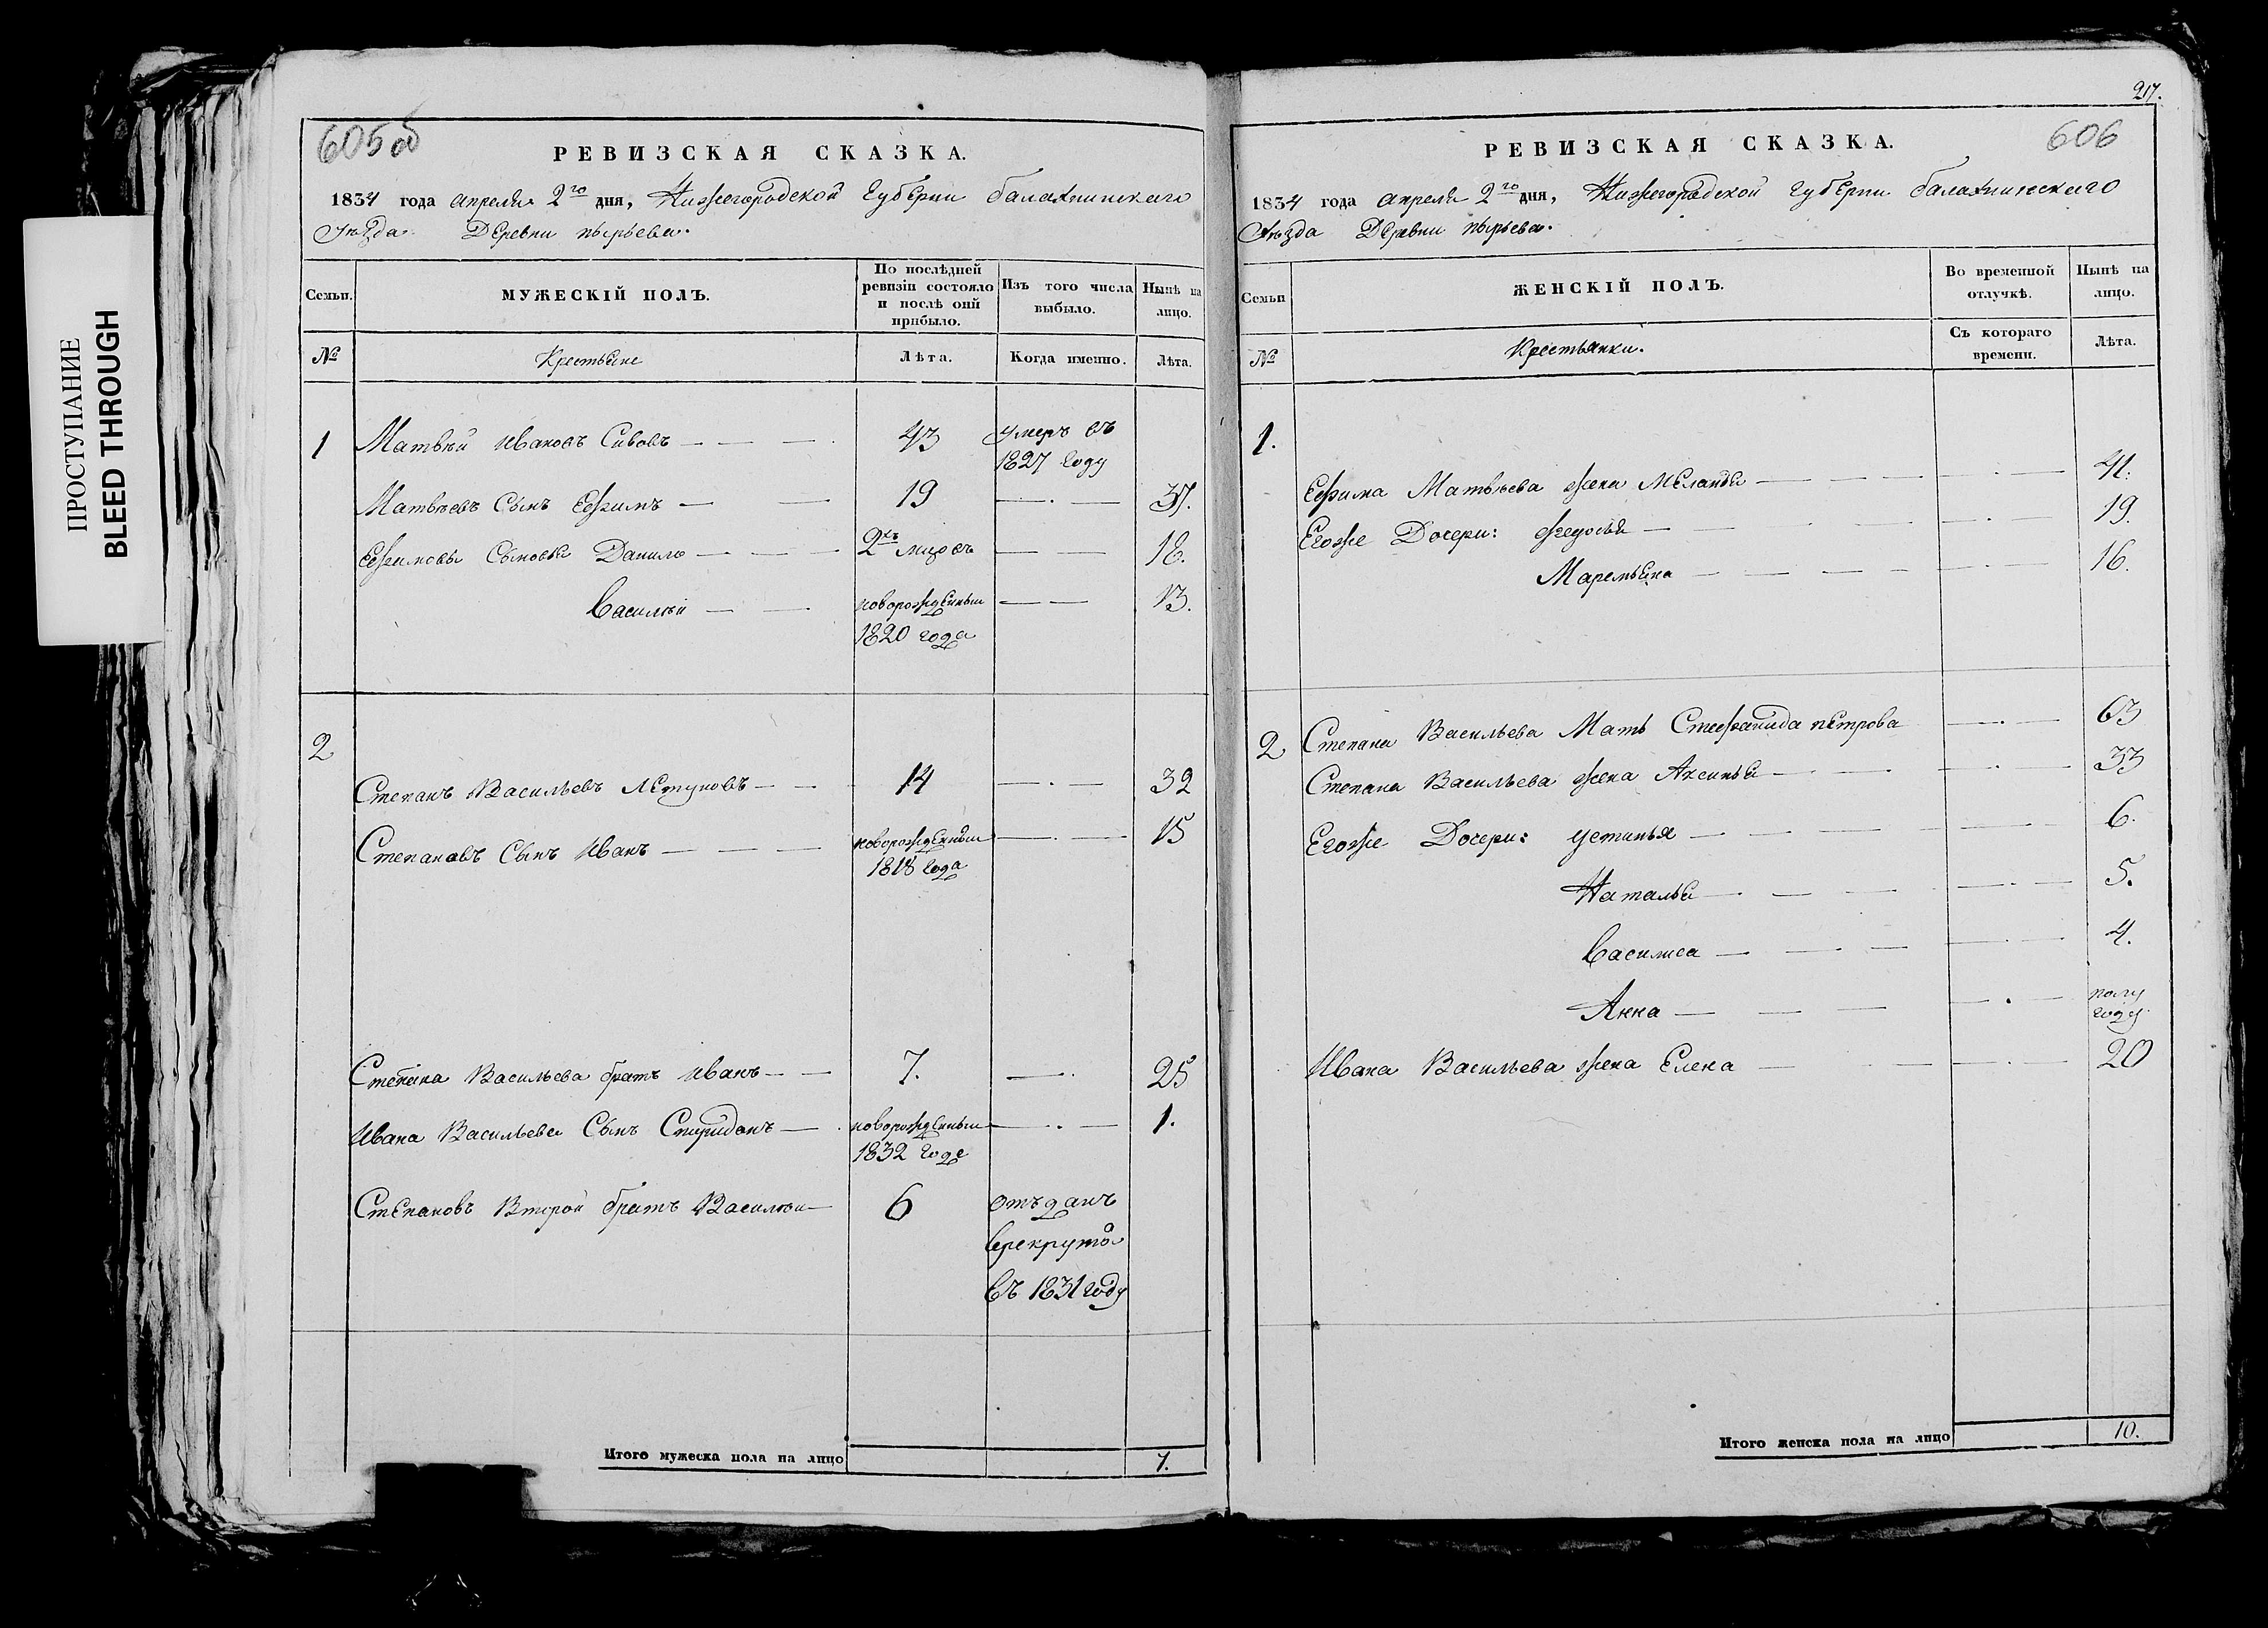 ПРОСТУПАНИЕ
BLEED THROUGH
605об
РЕВИЗСКАЯ СКАЗКА.
1834 года апреля 2го дня, Нижегородской Губерни балахнинскаго
уѣзда Деревни пырьева.
Семьи.
МУЖЕСКІЙ ПОЛЪ.
По послѣдней ревизіи состояло и послѣ оній прибыло.
Изъ того числа выбыло.
Нынѣ на лицо.
№
Крестьяне
Лѣта.
Когда именно.
Лѣта.
1 Матвѣй Ивановъ Сивовъ 43 умеръ въ
1827 году
Матвѣевъ Сынъ Ефимъ 19 37.
Ефимовы Сыновья Данило 2хъ мцовъ 18.
Василѣй новорожденныи 13.
1820 года
2
Степанъ Васильевъ Летуновъ 14 32
Степановъ Сынъ Иванъ новорожденныи 15
1818 года
Степана Васильева братъ иванъ 7. 25
Ивана Васильева Сынъ Спиридонъ новорожденныи 1.
1832 года
Степановъ Второй братъ Василѣи 6 отъданъ
врекруты
въ 1831 году
Итого мужеска пола на лицо 7.
217.
606
РЕВИЗСКАЯ СКАЗКА.
1834 года апреля 2го дня, Нижегородской губерни балахнинскаго
уѣзда Деревни пырьева.
Семьи
ЖЕНСКІЙ ПОЛЪ.
Во временной отлучкѣ.
Нынѣ на лицо.
№
Крестьянки.
Съ котораго времени.
Лѣта.
1.
Ефима Матвѣева жена Меланья 41.
Егоже Дочери: Федосья 19.
Маремьяна 16.
2 Степана Васильева Мать Стефанида петрова 63
Степана Васильева жена Аксинья 33
Егоже Дочери: устинья 6.
Наталья 5.
Василиса 4.
Анна полу
году.
Ивана Васильева жена Елена 20
Итого женска пола на лицо 10.